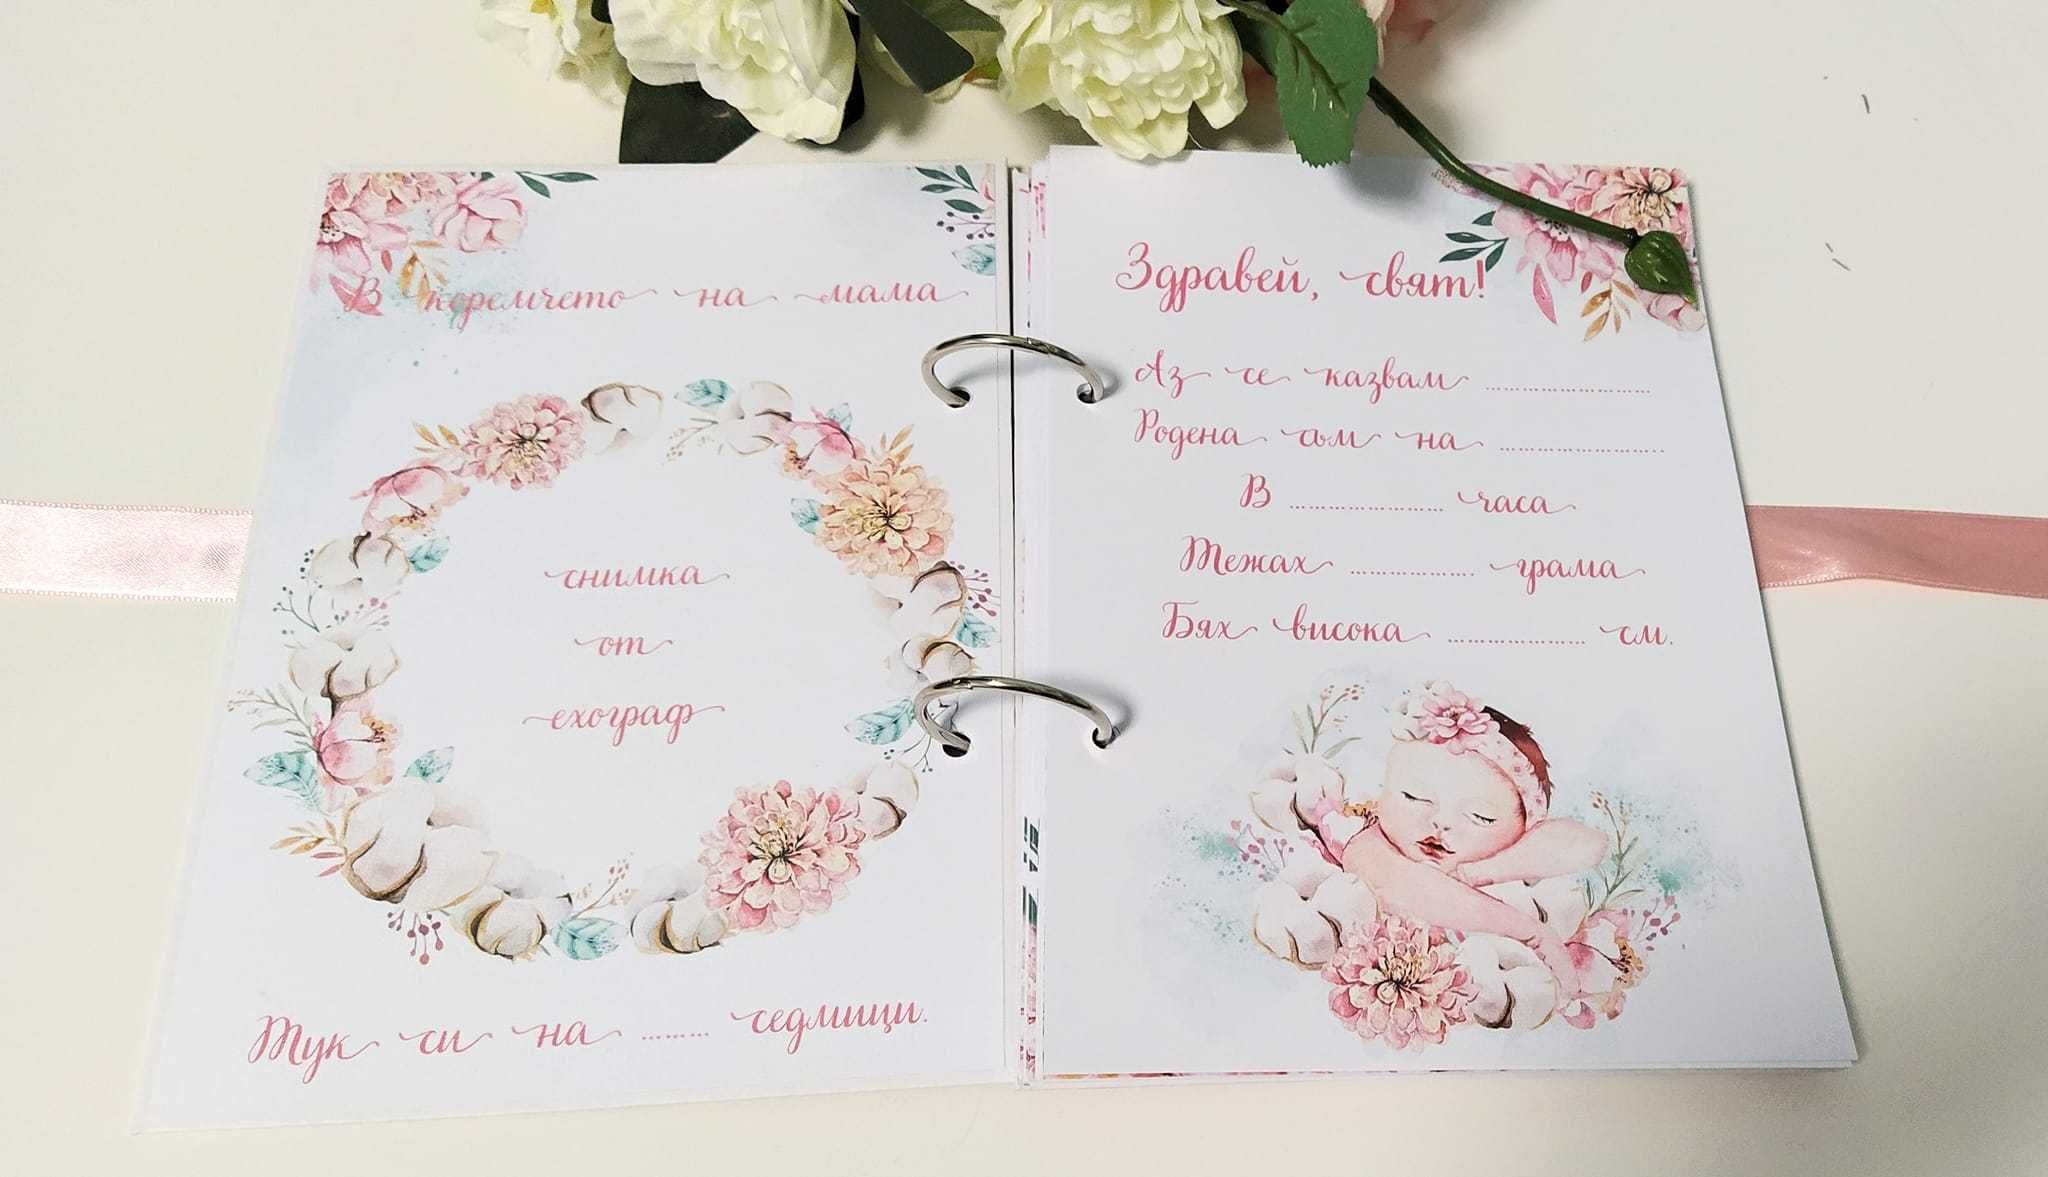 В коремчето на мама
снимка
от
ехограф
Тук си на ......... седмици.
Здравей, свят!
Аз се казвам ........................
Родена съм на ........................
В ...................... часа
Тежах .................. грама
Бях висока .................... см.